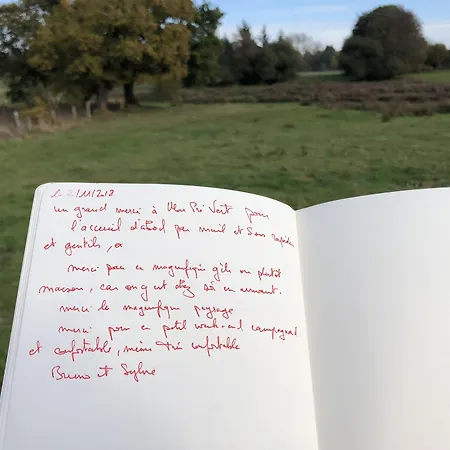 le 2/11/2018
un grand merci à Mon Pré Vert pour
l'accueil d'abord par mail et sms rapides
et gentils,
merci pour ce magnifique gîte ou plutôt
maison, car on y est chez soi en arrivant.
merci le magnifique paysage
merci pour ce petit week-end campagnard
et confortable, même très confortable
Bruno et Sylvie